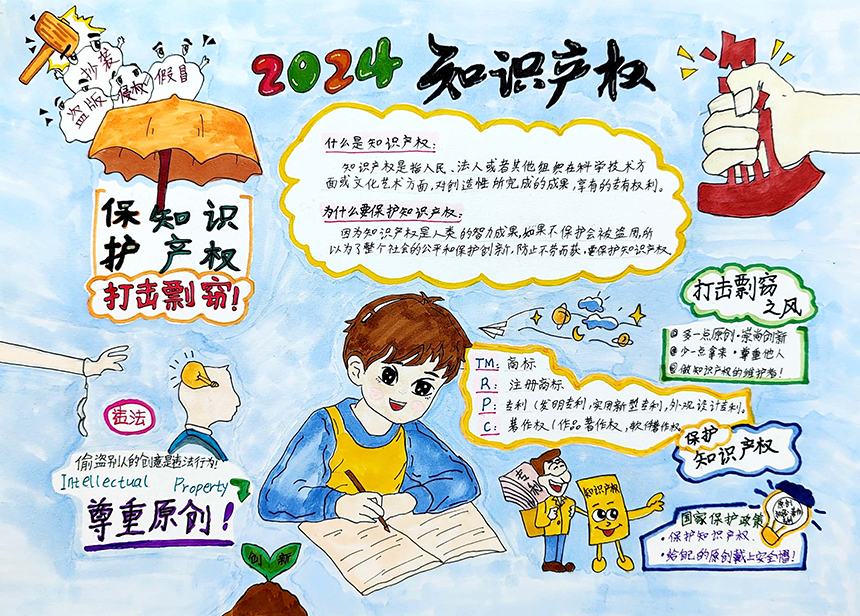 抄袭
假冒
盗版
侵权
2024 知识产权
什么是知识产权:
知识产权是指人民、法人或者其他组织在科学技术方
面或文化艺术方面,对创造性所完成的成果,享有的专有权利。
为什么要保护知识产权:
因为知识产权是人类的智力成果,如果不保护会被盗用,所
以为了整个社会的公平和保护创新,防止不劳而获,要保护知识产权
保护
知识
产权
打击剽窃!
打击剽窃
之风
多一点原创·崇尚创新
少一点拿来·尊重他人
做知识产权的维护者!
TM: 商标
R: 注册商标
P: 专利(发明专利,实用新型专利,外观设计专利。
C: 著作权(作品著作权,软件著作权。
保护
知识产权
违法
偷盗别人的创意是违法行为!
Intellectual Property
尊重原创!
知识产权
国家保护政策
·保护知识产权.
·给自己的原创戴上安全帽!
原创
创新